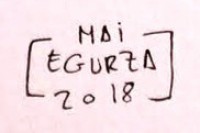 MAi
EGURZA
2018